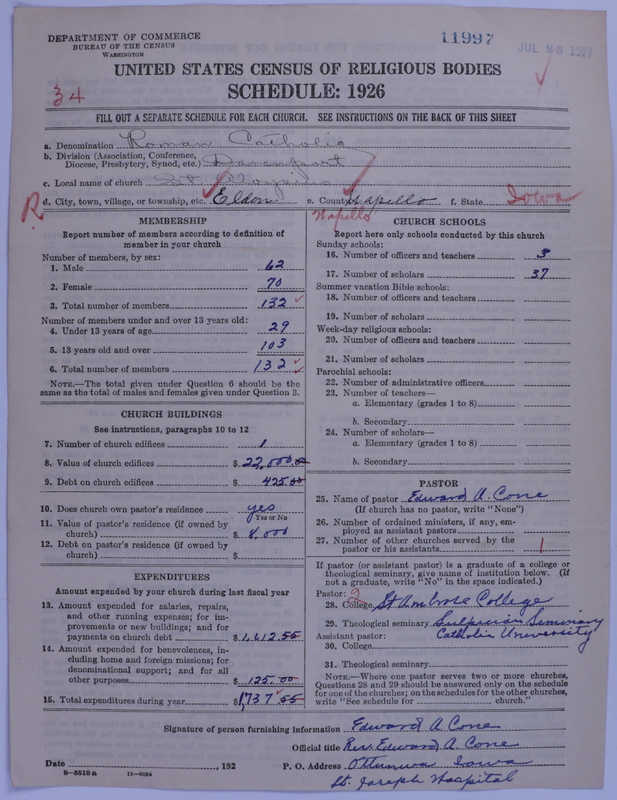 DEPARTMENT OF COMMERCE
BUREAU OF THE CENSUS
WASHINGTON
11997
UNITED STATES CENSUS OF RELIGIOUS BODIES
SCHEDULE: 1926
34
FILL OUT A SEPARATE SCHEDULE FOR EACH CHURCH. SEE INSTRUCTIONS ON THE BACK OF THIS SHEET
a. Denomination Roman Catholic
b. Division (Association, Conference,
Diocese, Presbytery, Synod, etc.) Davenport
c. Local name of church St. Aloysius
d. City, town, village, or township, etc. Eldon e. County Wapello f. State Iowa
R
Wapello
MEMBERSHIP
Report number of members according to definition of
member in your church
Number of members, by sex:
1. Male 62
2. Female 70
3. Total number of members 132
Number of members under and over 13 years old:
4. Under 13 years of age 29
5. 13 years old and over 103
6. Total number of members 132
NOTE.—The total given under Question 6 should be the
same as the total of males and females given under Question 3.
CHURCH BUILDINGS
See instructions, paragraphs 10 to 12
7. Number of church edifices 1
8. Value of church edifices $ 22,000.00
9. Debt on church edifices $ 425.00
10. Does church own pastor's residence yes
Yes or No
11. Value of pastor's residence (if owned by
church) $ 8.000
12. Debt on pastor's residence (if owned by
church) $
EXPENDITURES
Amount expended by your church during last fiscal year
13. Amount expended for salaries, repairs,
and other running expenses; for im-
provements or new buildings; and for
payments on church debt $ 1,612.55
14. Amount expended for benevolences, in-
cluding home and foreign missions; for
denominational support; and for all
other purposes $ 125.00
15. Total expenditures during year $ 1,737.55
CHURCH SCHOOLS
Report here only schools conducted by this church
Sunday schools:
16. Number of officers and teachers 3
17. Number of scholars 37
Summer vacation Bible schools:
18. Number of officers and teachers
19. Number of scholars
Week-day religious schools:
20. Number of officers and teachers
21. Number of scholars
Parochial schools:
22. Number of administrative officers
23. Number of teachers—
a. Elementary (grades 1 to 8)
b. Secondary
24. Number of scholars—
a. Elementary (grades 1 to 8)
b. Secondary
PASTOR
25. Name of pastor Edward A. Cone
(If church has no pastor, write "None")
26. Number of ordained ministers, if any, em-
ployed as assistant pastors
27. Number of other churches served by the
pastor or his assistants 1
If pastor (or assistant pastor) is a graduate of a college or
theological seminary, give name of institution below. (If
not a graduate, write "No" in the space indicated.)
Pastor: 2
28. College St Ambrose College
29. Theological seminary Sulpician Seminary
Assistant pastor: Catholic University
30. College
31. Theological seminary
NOTE.—Where one pastor serves two or more churches,
Questions 28 and 29 should be answered only on the schedule
for one of the churches; on the schedules for the other churches,
write "See schedule for church."
Signature of person furnishing information Edward A. Cone
Official title Rev. Edward A. Cone
Date , 192 P. O. Address Ottumwa Iowa
8—5518a 11—8054 St. Joseph Hospital